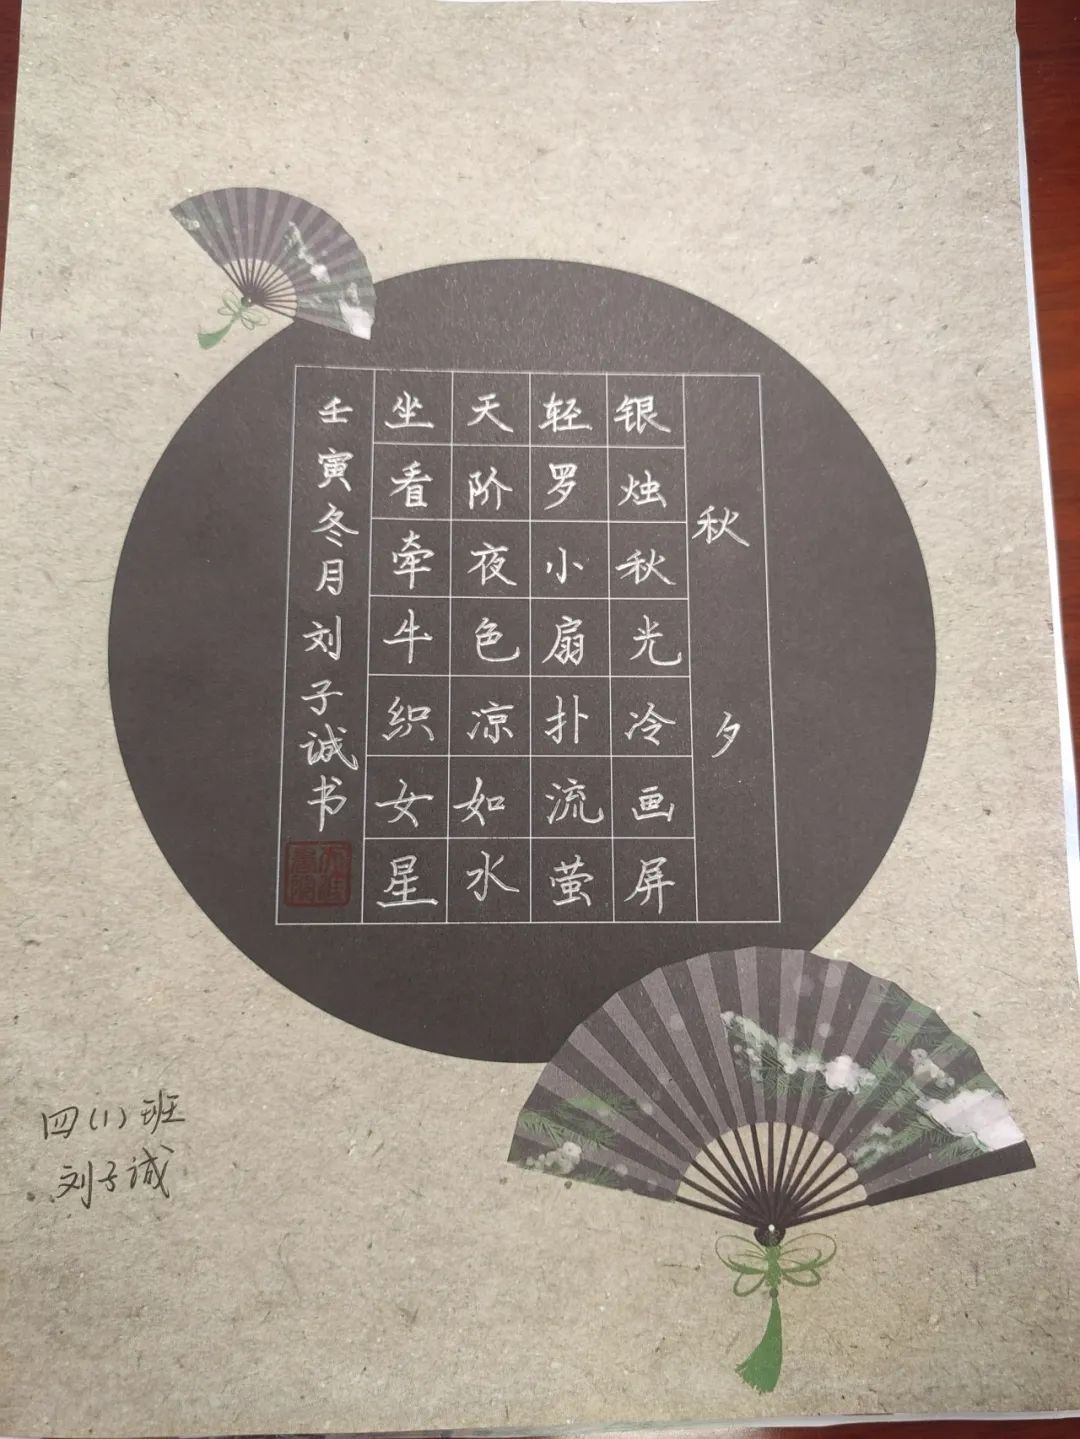 秋夕
银烛秋光冷画屏
轻罗小扇扑流萤
天阶夜色凉如水
坐看牵牛织女星
壬寅冬月刘子诚书
四(1)班
刘子诚